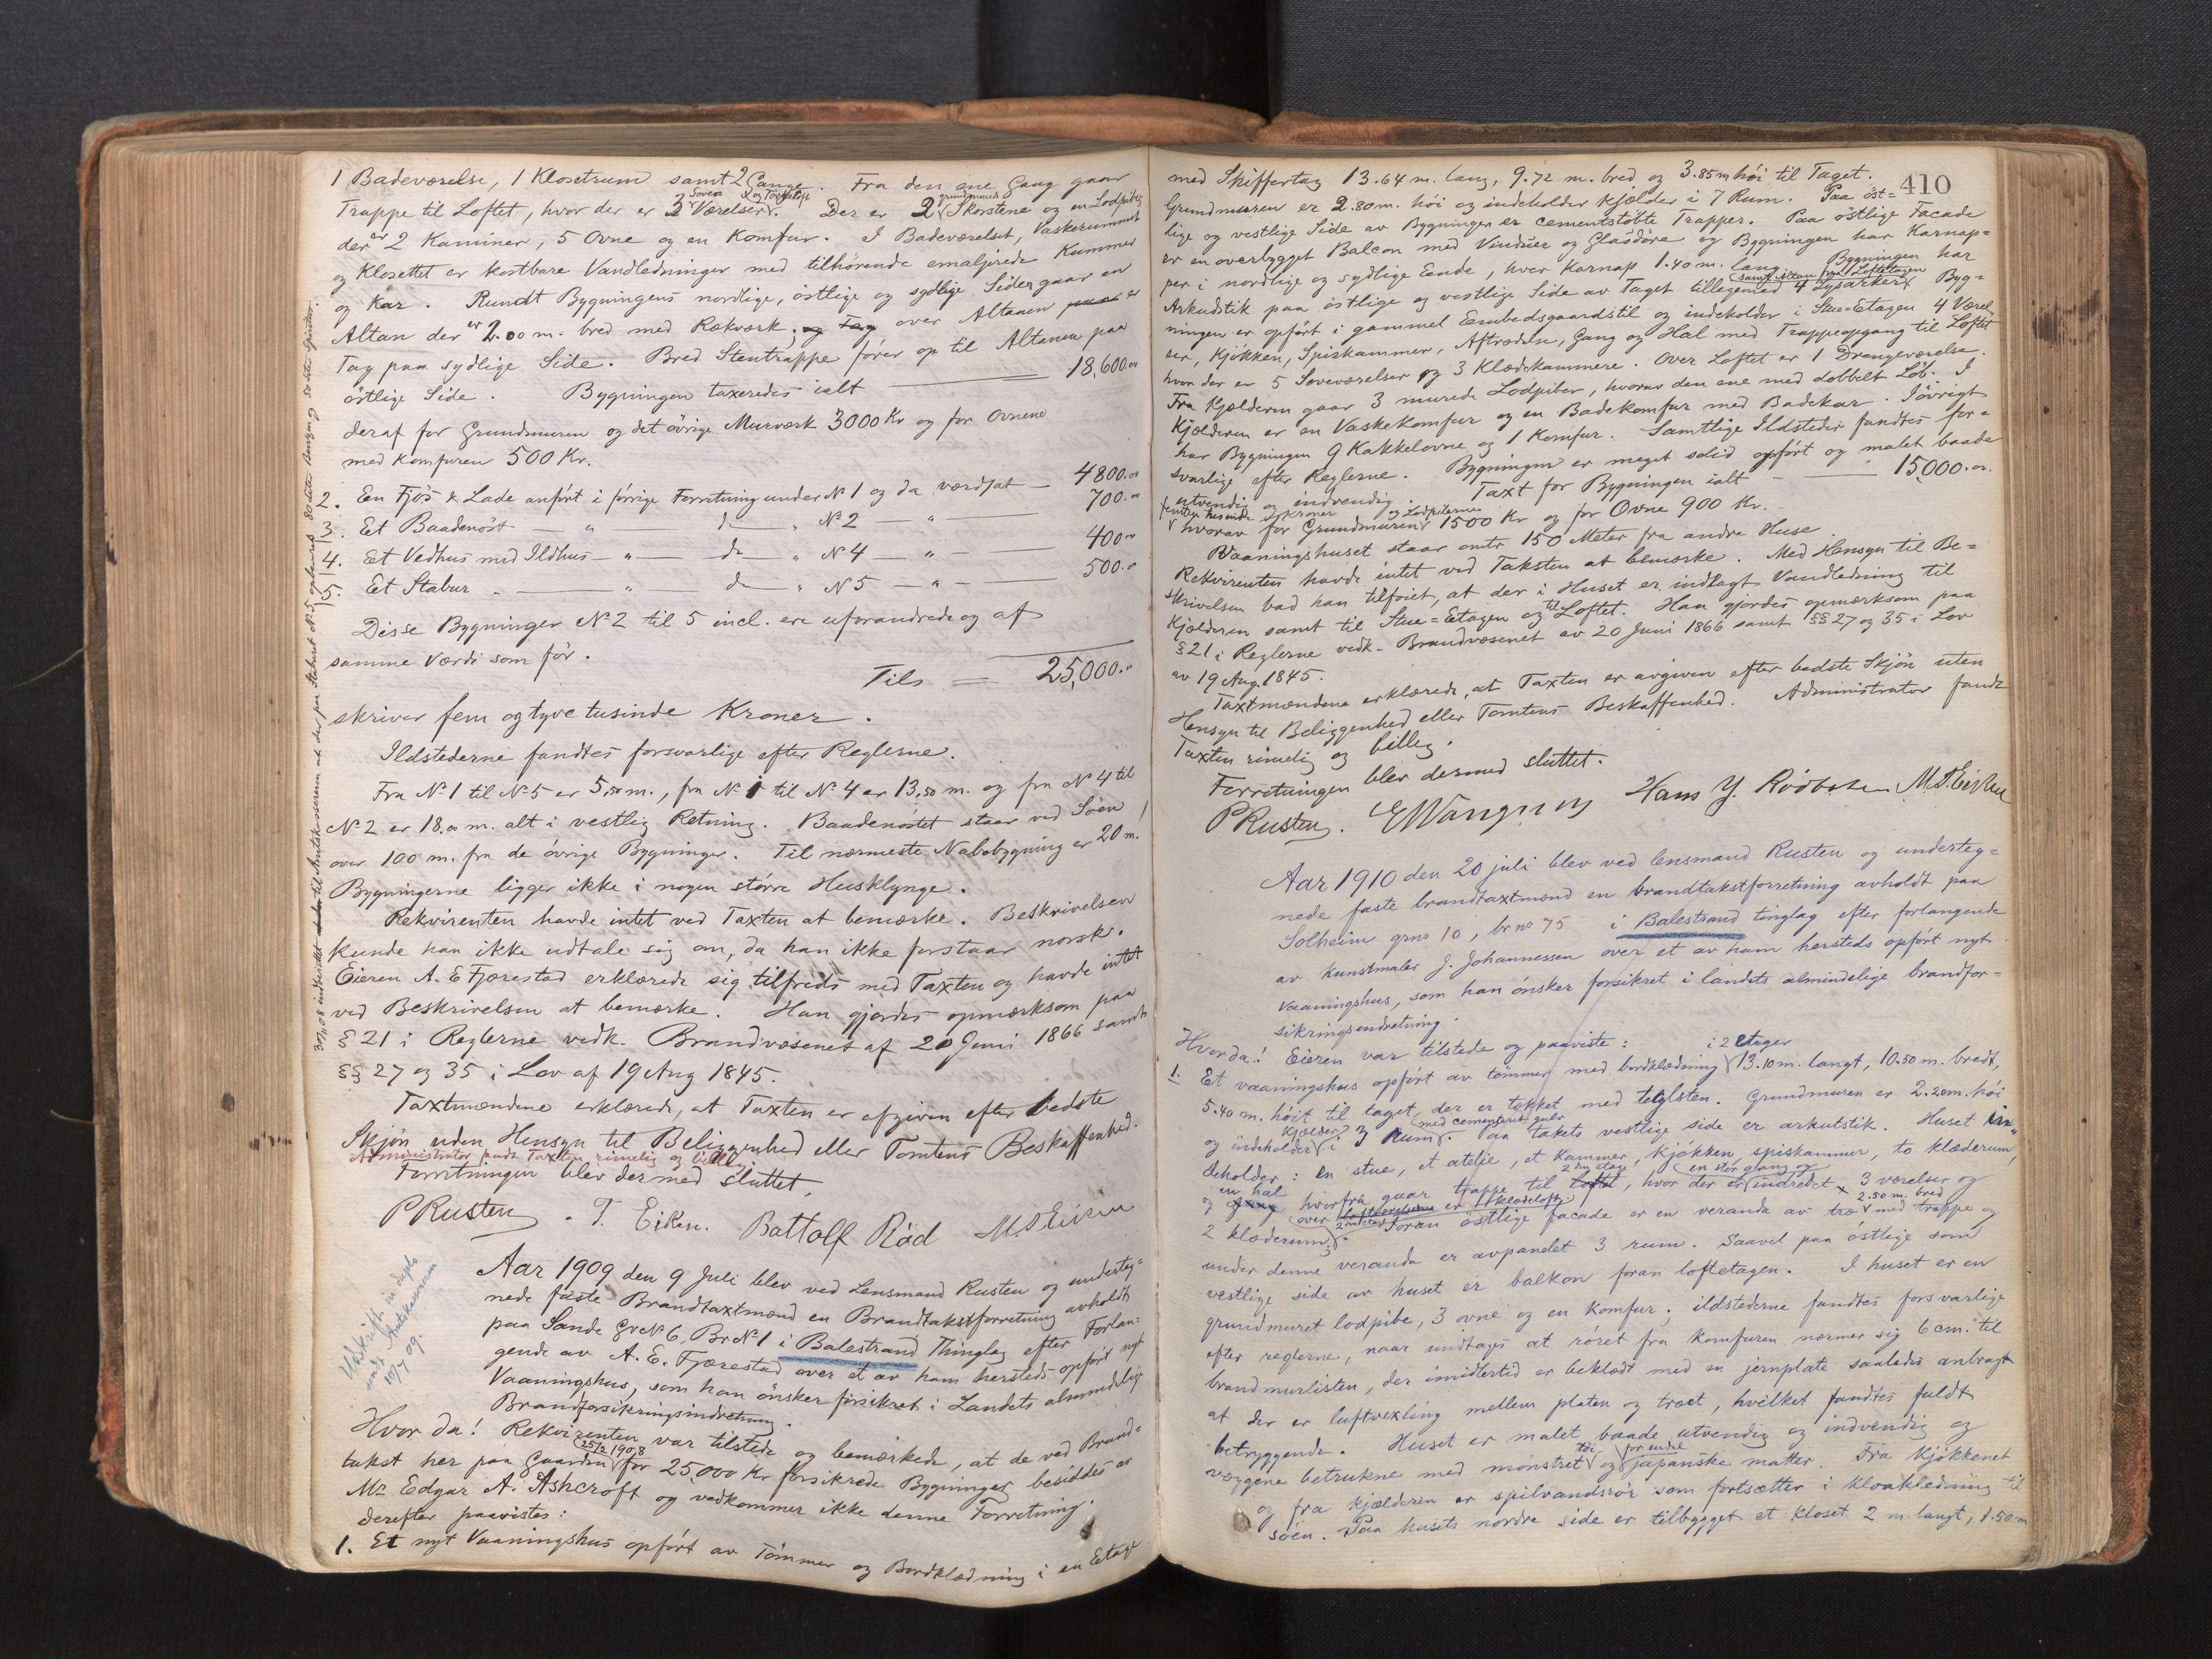 1 Badeværelse, 1 Klosetrum samt 2 Gange. Fra den ene Gang gaar
Trappe til Loftet, hvor der er 3 Sovea Værelser og Torkeloft. Der er 2 grundmurede Skorstene og en Lodpibe,
der er 2 Kaminer, 5 Ovne og en Komfur. I Badeværelset, Vaskerummet
og Klosettet er kostbare Vandledninger med tilhørende emaljerede Kummer
og Kar. Rundt Bygningens nordlige, östlige og sydlige Sider gaar en
Altan der er 2.00 m. bred med Rækværk, og Tag over Altanen paa er
Tag paa sydlige Side. Bred Stentrappe förer op til Altanen paa
östlige Side. Bygningen taxeredes ialt 18,600.00
deraf for Grundmuren og det övrige Murværk 3000 Kr og for Ovnene
med Komfuren 500 Kr.
2. En Fjös & Lade anfört i forrige Forretning under No 1 og da værdsat 4800.00
3. Et Baadenöst — " — do — " No 2 — " — 700.00
4. Et Vedhus med Ildhus — " — do — " No 4 — " — 400.00
5. Et Stabur — " — do — " No 5 — " — 500.00
Disse Bygninger No 2 til 5 incl. ere uforandrede og af
samme Værdi som för.
Tils = 25,000.00
skriver fem og tyve tusinde Kroner.
Ildstederne fandtes forsvarlige efter Reglerne.
Fra No 1 til No 5 er 5,50 m., fra No 1 til No 4 er 13,50 m. og fra No 4 til
No 2 er 18,00 m. alt i vestlig Retning. Baadenöstet staar ved Söen
over 100 m. fra de övrige Bygninger. Til nærmeste Nabobygning er 20 m.
Bygningerne ligger ikke i nogen större Husklynge.
Rekvirenten havde intet ved Taxten at bemærke. Beskrivelsen
kunde han ikke udtale sig om, da han ikke forstaar norsk.
Eieren A. E Fjærestad erklærede sig tilfreds med Taxten og havde intet
ved Beskrivelsen at bemærke. Han gjordes opmærksom paa
§ 21 i Reglerne vedk. Brandvæsenet af 20 Juni 1866 samt
§§ 27 og 35 i Lov af 19 Aug 1845.
Taxtmændene erklærede, at Taxten er afgiven efter bedste
Skjön uden Hensyn til Beliggenhed eller Tomtens Beskaffenhed.
Administrator fandt Taxten rimelig og billig
Forretningen blev dermed sluttet.
PRusten. T. Eiken. Battolf Röd M.S.Eisen
Udskrift in duplo
sendt Amtskassereren
10/7 09.
Aar 1909 den 9 Juli blev ved Lensmand Rusten og underteg-
nede faste Brandtaxtmænd en Brandtakstforretning avholdt
paa Sande Gr No 6. Br No 1 i Balestrand Thinglag efter Forlan-
gende av A. E. Fjærestad over et av ham hersteds opfört nyt
Vaaningshus, som han önsker forsikret i Landets almindelige
Brandforsikringsindretning.
Hvor da! Rekvirenten var tilstede og bemærkede, at de ved Brand-
takst her paa Gaarden 25/2 1908 for 25,000 Kr forsikrede Bygninger besiddes av
Mr Edgar A. Ashcroft og vedkommer ikke denne Forretning.
derefter paavistes:
1. Et nyt Vaaningshus opfört av Tömmer og Bordklædning i en Etage
410
med Skiffertag 13.64 m. lang, 9.72 m. bred og 3.85 m höi til Taget.
Grundmuren er 2.80 m. höi og indeholder Kjælder i 7 Rum. Paa öst-
lige og vestlige Side av Bygningen er cementstöbte Trapper. Paa östlige Facade
er en overbygget Balcon med Vinduer og Glasdöre og Bygningen har Karnap-
per i nordlige og sydlige Ende, hver Karnap 1.40 m. lang. Bygningen har
Arkudstik paa östlige og vestlige Side av Taget tillegemed 4 Lysarker samt altan fra Loftetagen. Byg-
ningen er opfört i gammel Embedsgaardstil og indeholder i Stue-Etagen 4 Værel-
ser, Kjökken, Spiskammer, Aftrædelse, Gang og Hal med Trappeopgang til Loftet
hvor der er 5 Soveværelser og 3 Klædekammere. Over Loftet er 1 Drengeværelse.
Fra Kjælderen gaar 3 murede Lodpiber, hvorav den ene med dobbelt Löb. I
Kjælderen er en Vaskekomfur og en Badekomfur med Badekar. Iövrigt
har Bygningen 9 Kakkelovne og 1 Komfur. Samtlige Ildsteder fandtes for-
svarlige efter Reglerne. Bygningen er meget solid opfört og malet baade
utvendig og indvendig. Taxt for Bygningen ialt 15,000.00
femten tusinde Kroner
hvorav for Grundmuren og Lodpiberne 1500 Kr og for Ovne 900 Kr.
Vaaningshuset staar omtr 150 Meter fra andre Huse
Rekvirenten havde intet ved Taksten at bemærke. Med Hensyn til Be-
skrivelsen bad han tilföiet, at der i Huset er indlagt Vandledning til
Kjælderen samt til Stue-Etagen og til Loftet. Han gjordes opmærksom paa
§ 21 i Reglerne vedk. Brandvæsenet av 20 Juni 1866 samt §§ 27 og 35 i Lov
av 19 Aug. 1845.
Taxtmændene erklærede, at Taxten er avgiven efter bedste Skjön uten
Hensyn til Beliggenhed eller Tomtens Beskaffenhed. Administrator fandt
Taxten rimelig og billig.
Forretningen blev dermed sluttet.
PRusten. Hans Y.
Aar 1910 den 20 juli blev ved lensmand Rusten og underteg-
nede faste brandtaxtmænd en brandtakstforretning avholdt paa
Solheim grno 10, brno 75 i Balestrand tinglag efter forlangende
av kunstmaler J. Johannessen over et av ham hersteds opfört nyt
vaaningshus, som han önsker forsikret i landets almindelige brandfor-
sikringsindretning.
Hvor da! Eieren var tilstede og paaviste:
1. Et vaaningshus opfört av tömmer med bordklædning i 2 Etager 13.10 m. langt, 10.50 m. bredt,
5.40 m. höit til taget, der er tækket med teglsten. Grundmuren er 2.20 m. höi
og indeholder kjælder i 3 rum med cementeret gulv. Paa takets vestlige side er arkutstik. Huset in-
deholder: en stue, et atelie, et kammer, kjökken, spiskammer, to klæderum,
og en hal hvorfra gaar trappe til 2den etage, hvor der er en stor gang og indredet 3 værelser og
2 klæderum, over 2den etage er klædeloft. Foran östlige facade er en veranda av træ 2.50 m. bred med trappe og
under denne veranda er avpanelet 3 rum. Saavel paa östlige som
vestlige side av huset er balkon foran loftetagen. I huset er en
grundmuret lodpibe, 3 ovne og en komfur; ildstederne fandtes forsvarlige
efter reglerne, naar undtages at röret fra komfuren nærmer sig 6 cm. til
brandmurlisten, der imidlertid er beklædt med en jernplate saaledes anbragt
at der er luftvexling mellem platen og træet, hvilket fandtes fuldt
betryggende. Huset er malet baade utvendig og indvendig og
væggene betrukne med mönstret töi og for endel japanske matter. Fra kjökkenet
og fra kjælderen er spilvandsrör som fortsætter i kloakledning til
söen. Paa husets nordre side er tilbygget et kloset 2 m. langt, 1.50 m